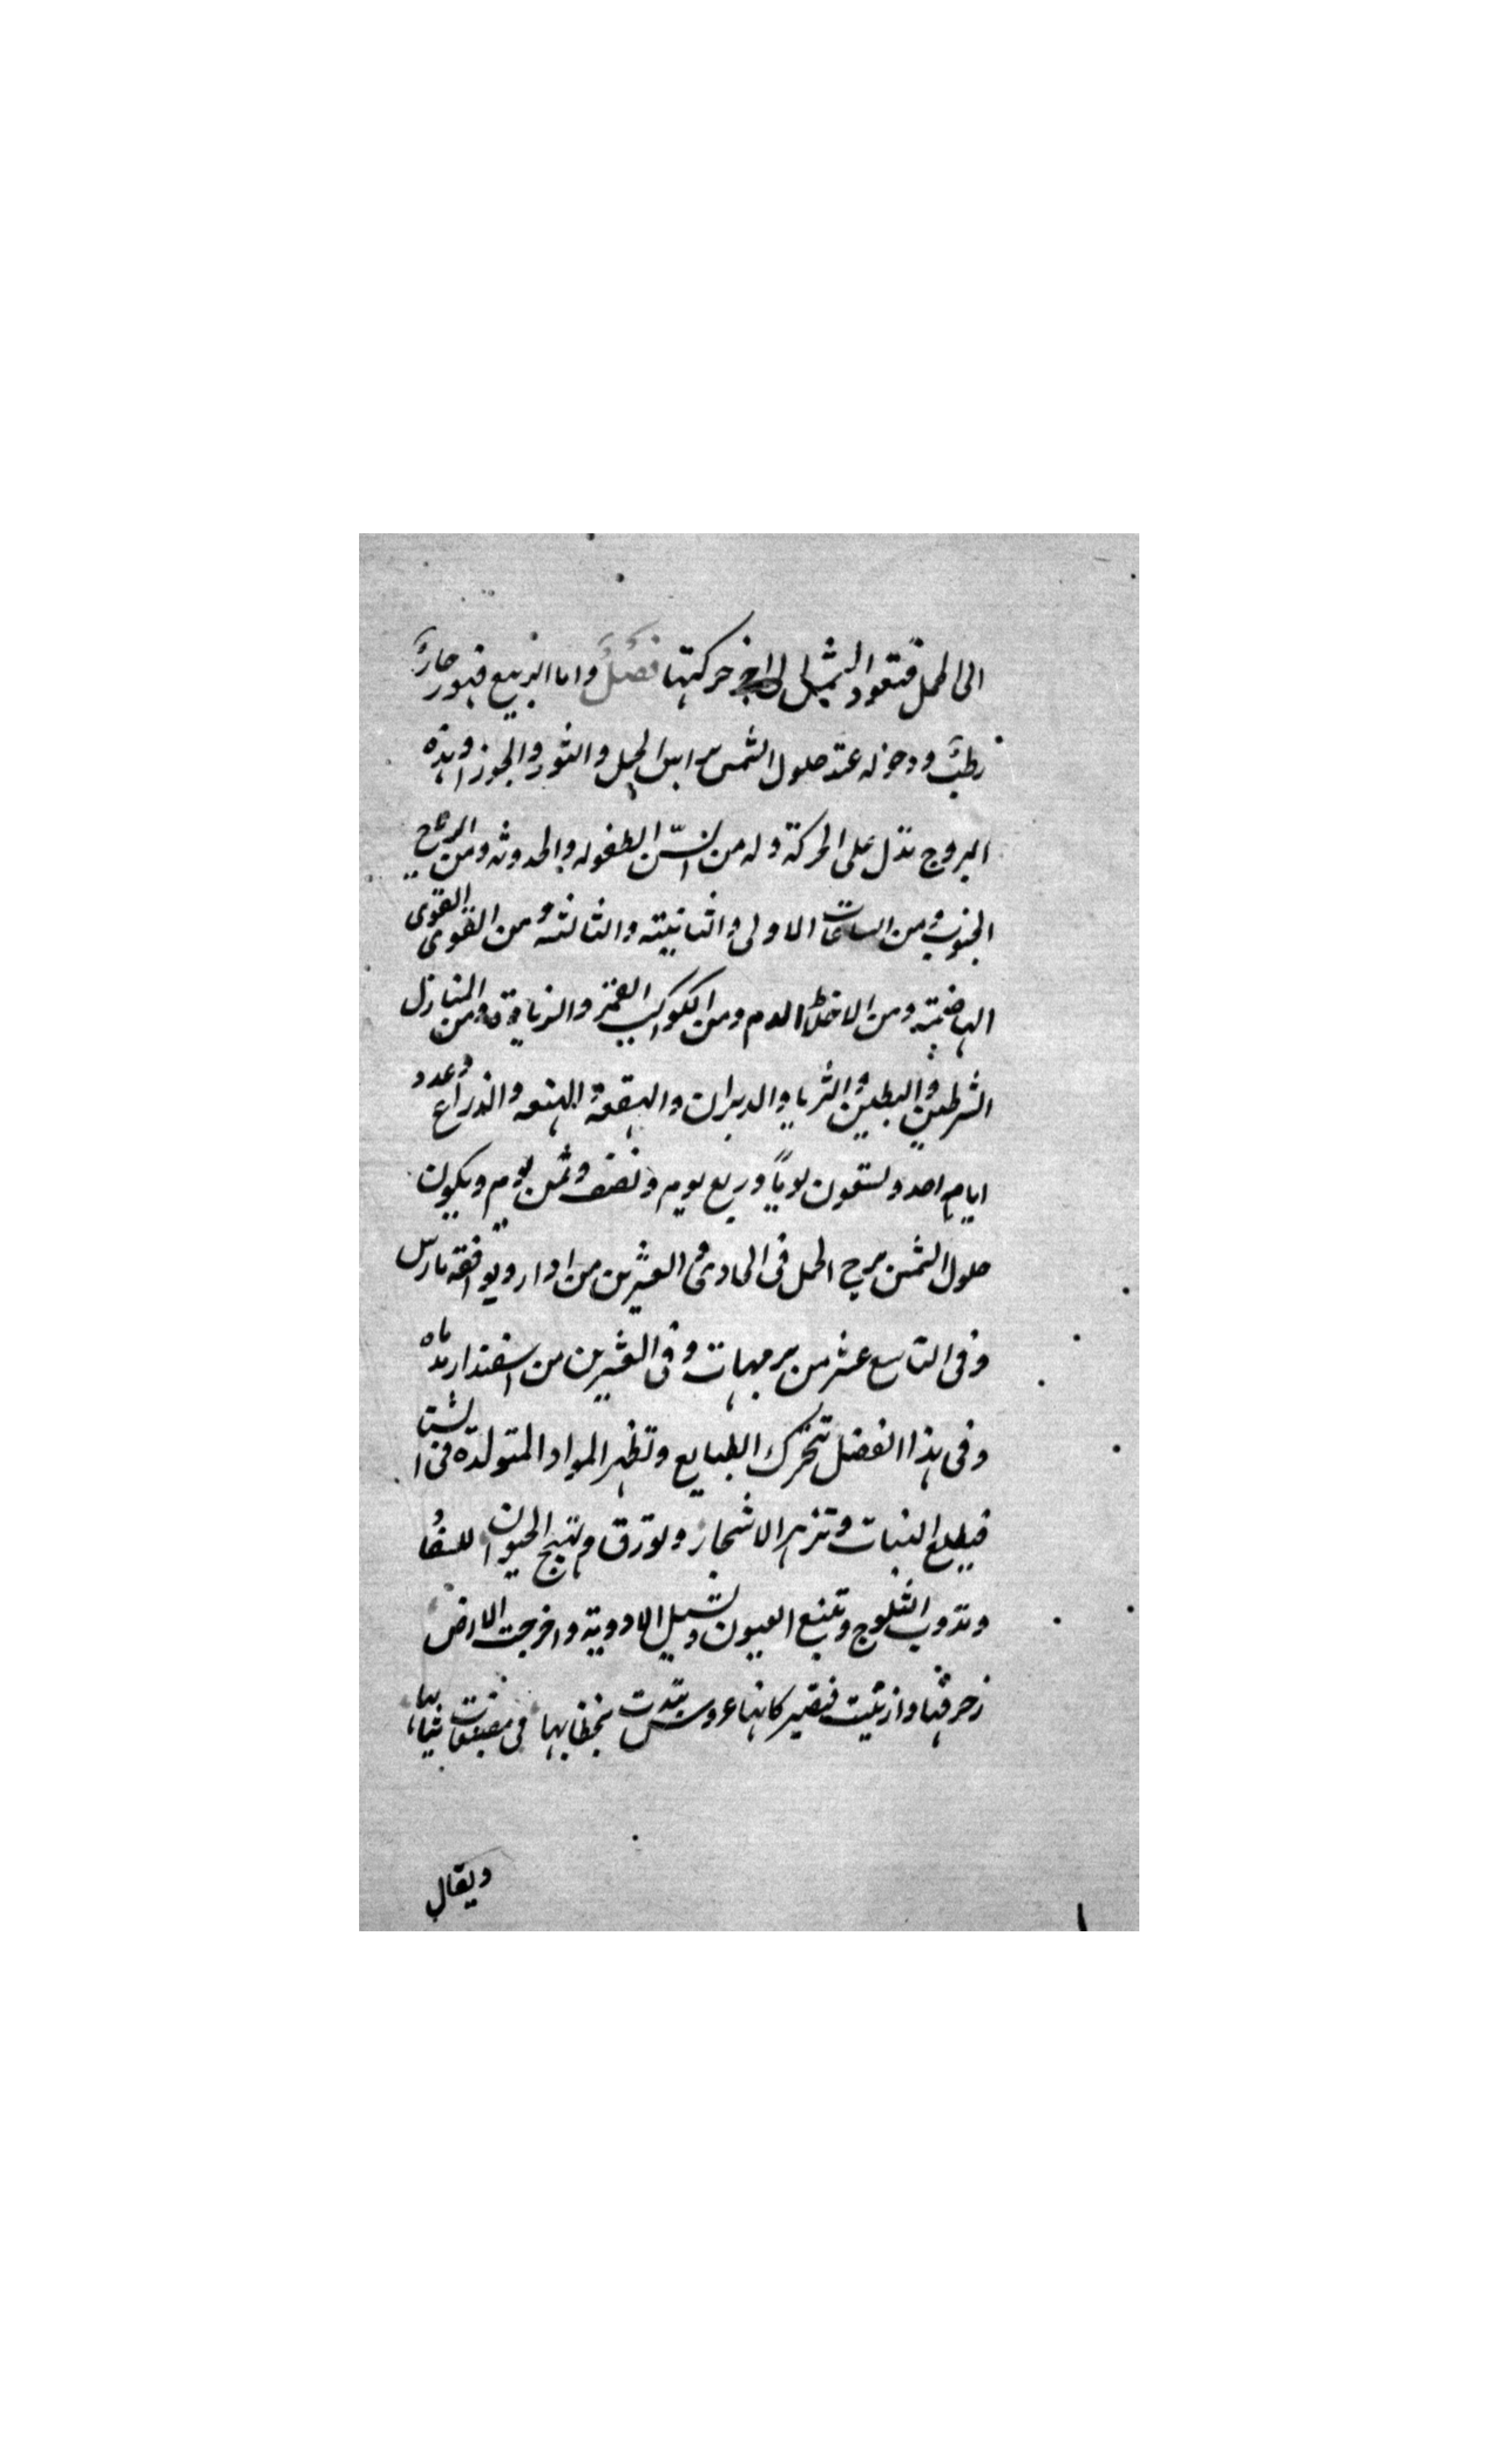 الى الحمل فتعود الشمس الى اخر حركتها فصل واما الربيع فهو حار
رطب ودخوله عند حلول الشمس براس الحمل والثور والجوزا وهذه
البروج تدل على الحركة وله من السن الطفوله والحدوثه ومن الرياح
الجنوب ومن الساعات الاولى والثانيته والثالثه ومن القوى القوى
الهاضمته ومن الاخلاط الدم ومن الكواكب القمر والزهرة ومن المنازل
الشرطين والبطين والثريا والدبران والهقعة والهنعه والذراع وعدد
ايامه احد وتسعون يوماً وربع يوم ونصف وثمن يوم ويكون
حلول الشمس برج الحمل فى الحادى والعشرين من ادار ويوافقه مارس
وفى التاسع عشر من برمهات وفى العشرين من اسفندارمذ ماه
وفى هذا الفصل تتحرك الطبايع وتظهر المواد المتولدة فى الشتا
فيطلع النبات وتزهر الاشجار وتورق وتهيج الحيوان للسفاد
وتذوب الثلوج وتنبع العيون وتسيل الاودية واخرجت الارض
زخرفها وازينت فتصير كانها عروس تبدت لخطابها فى مصبغات ثيابها
ويقال